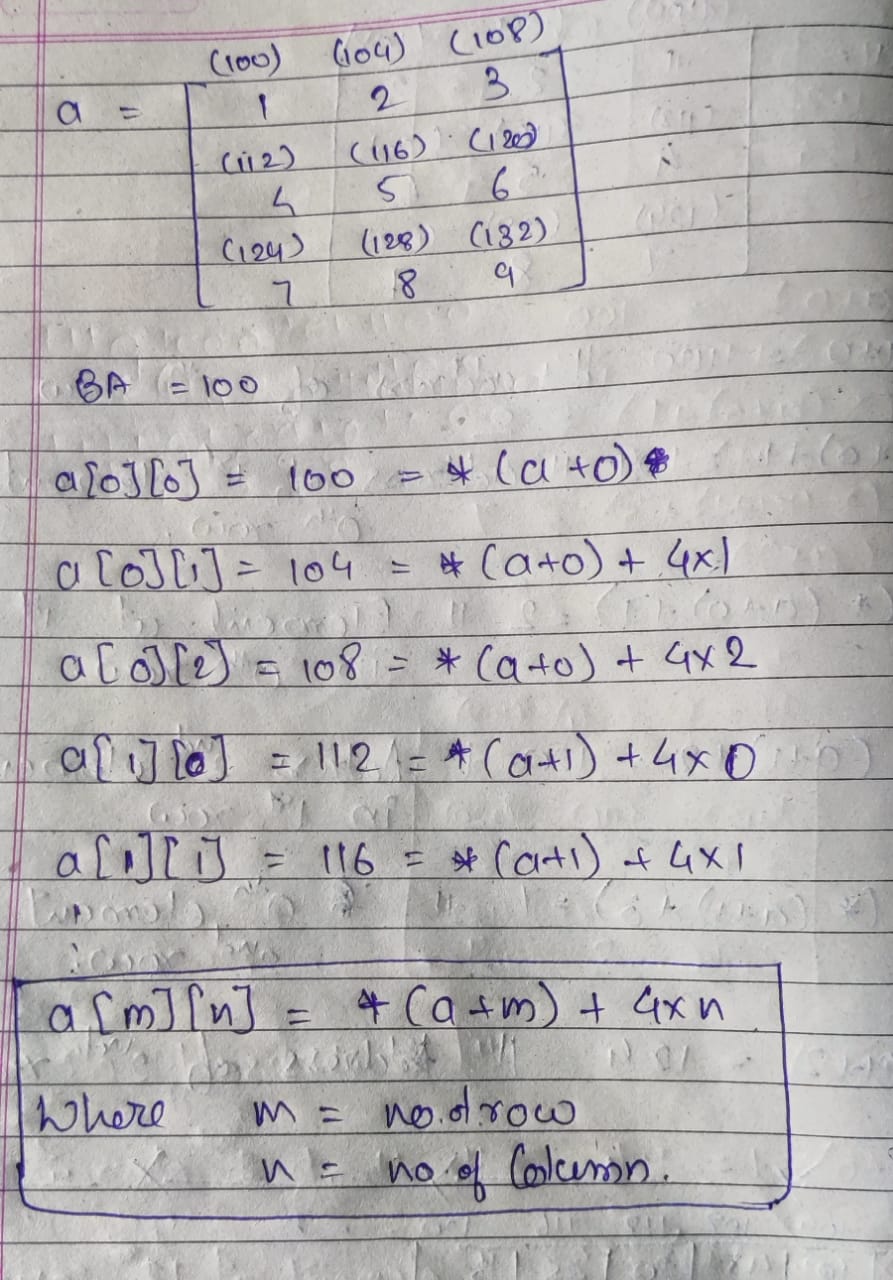 (100) (104) (108)
a = 1 2 3
(112) (116) (120)
4 5 6
(124) (128) (132)
7 8 9
BA = 100
a[0][0] = 100 = *(a+0)
a[0][1] = 104 = *(a+0) + 4x1
a[0][2] = 108 = *(a+0) + 4x2
a[1][0] = 112 = *(a+1) + 4x0
a[1][1] = 116 = *(a+1) + 4x1
a[m][n] = *(a+m) + 4xn
Where m = no. of row
n = no of Column.